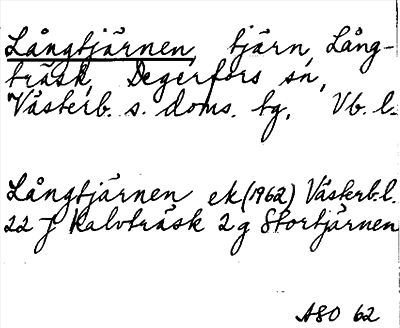 Långtjärnen, tjärn, Lång-
träsk, Degerfors sn,
Västerb. s. doms. tg. Vb. l.
Långtjärnen ek (1962) Västerb. l.
22 J Kalvträsk 2 g Stortjärnen
ASO 62